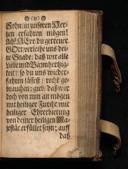 Sohn / in unserm Her-
tzen erfahren mögen!
Ach HErr du getreuer
GOtt verleihe uns dei-
ne Gnade / daß wir alle
Liebe und Barmhertzig-
keit / so du uns wieder-
fahren lässest / recht ge-
brauchen: gieb / daß wir
doch von nun an mögen
mit heiliger Furcht / mit
heiliger Ehrerbietung
vor deiner heiligen Ma-
jestät erfüllet seyn / auff
daß